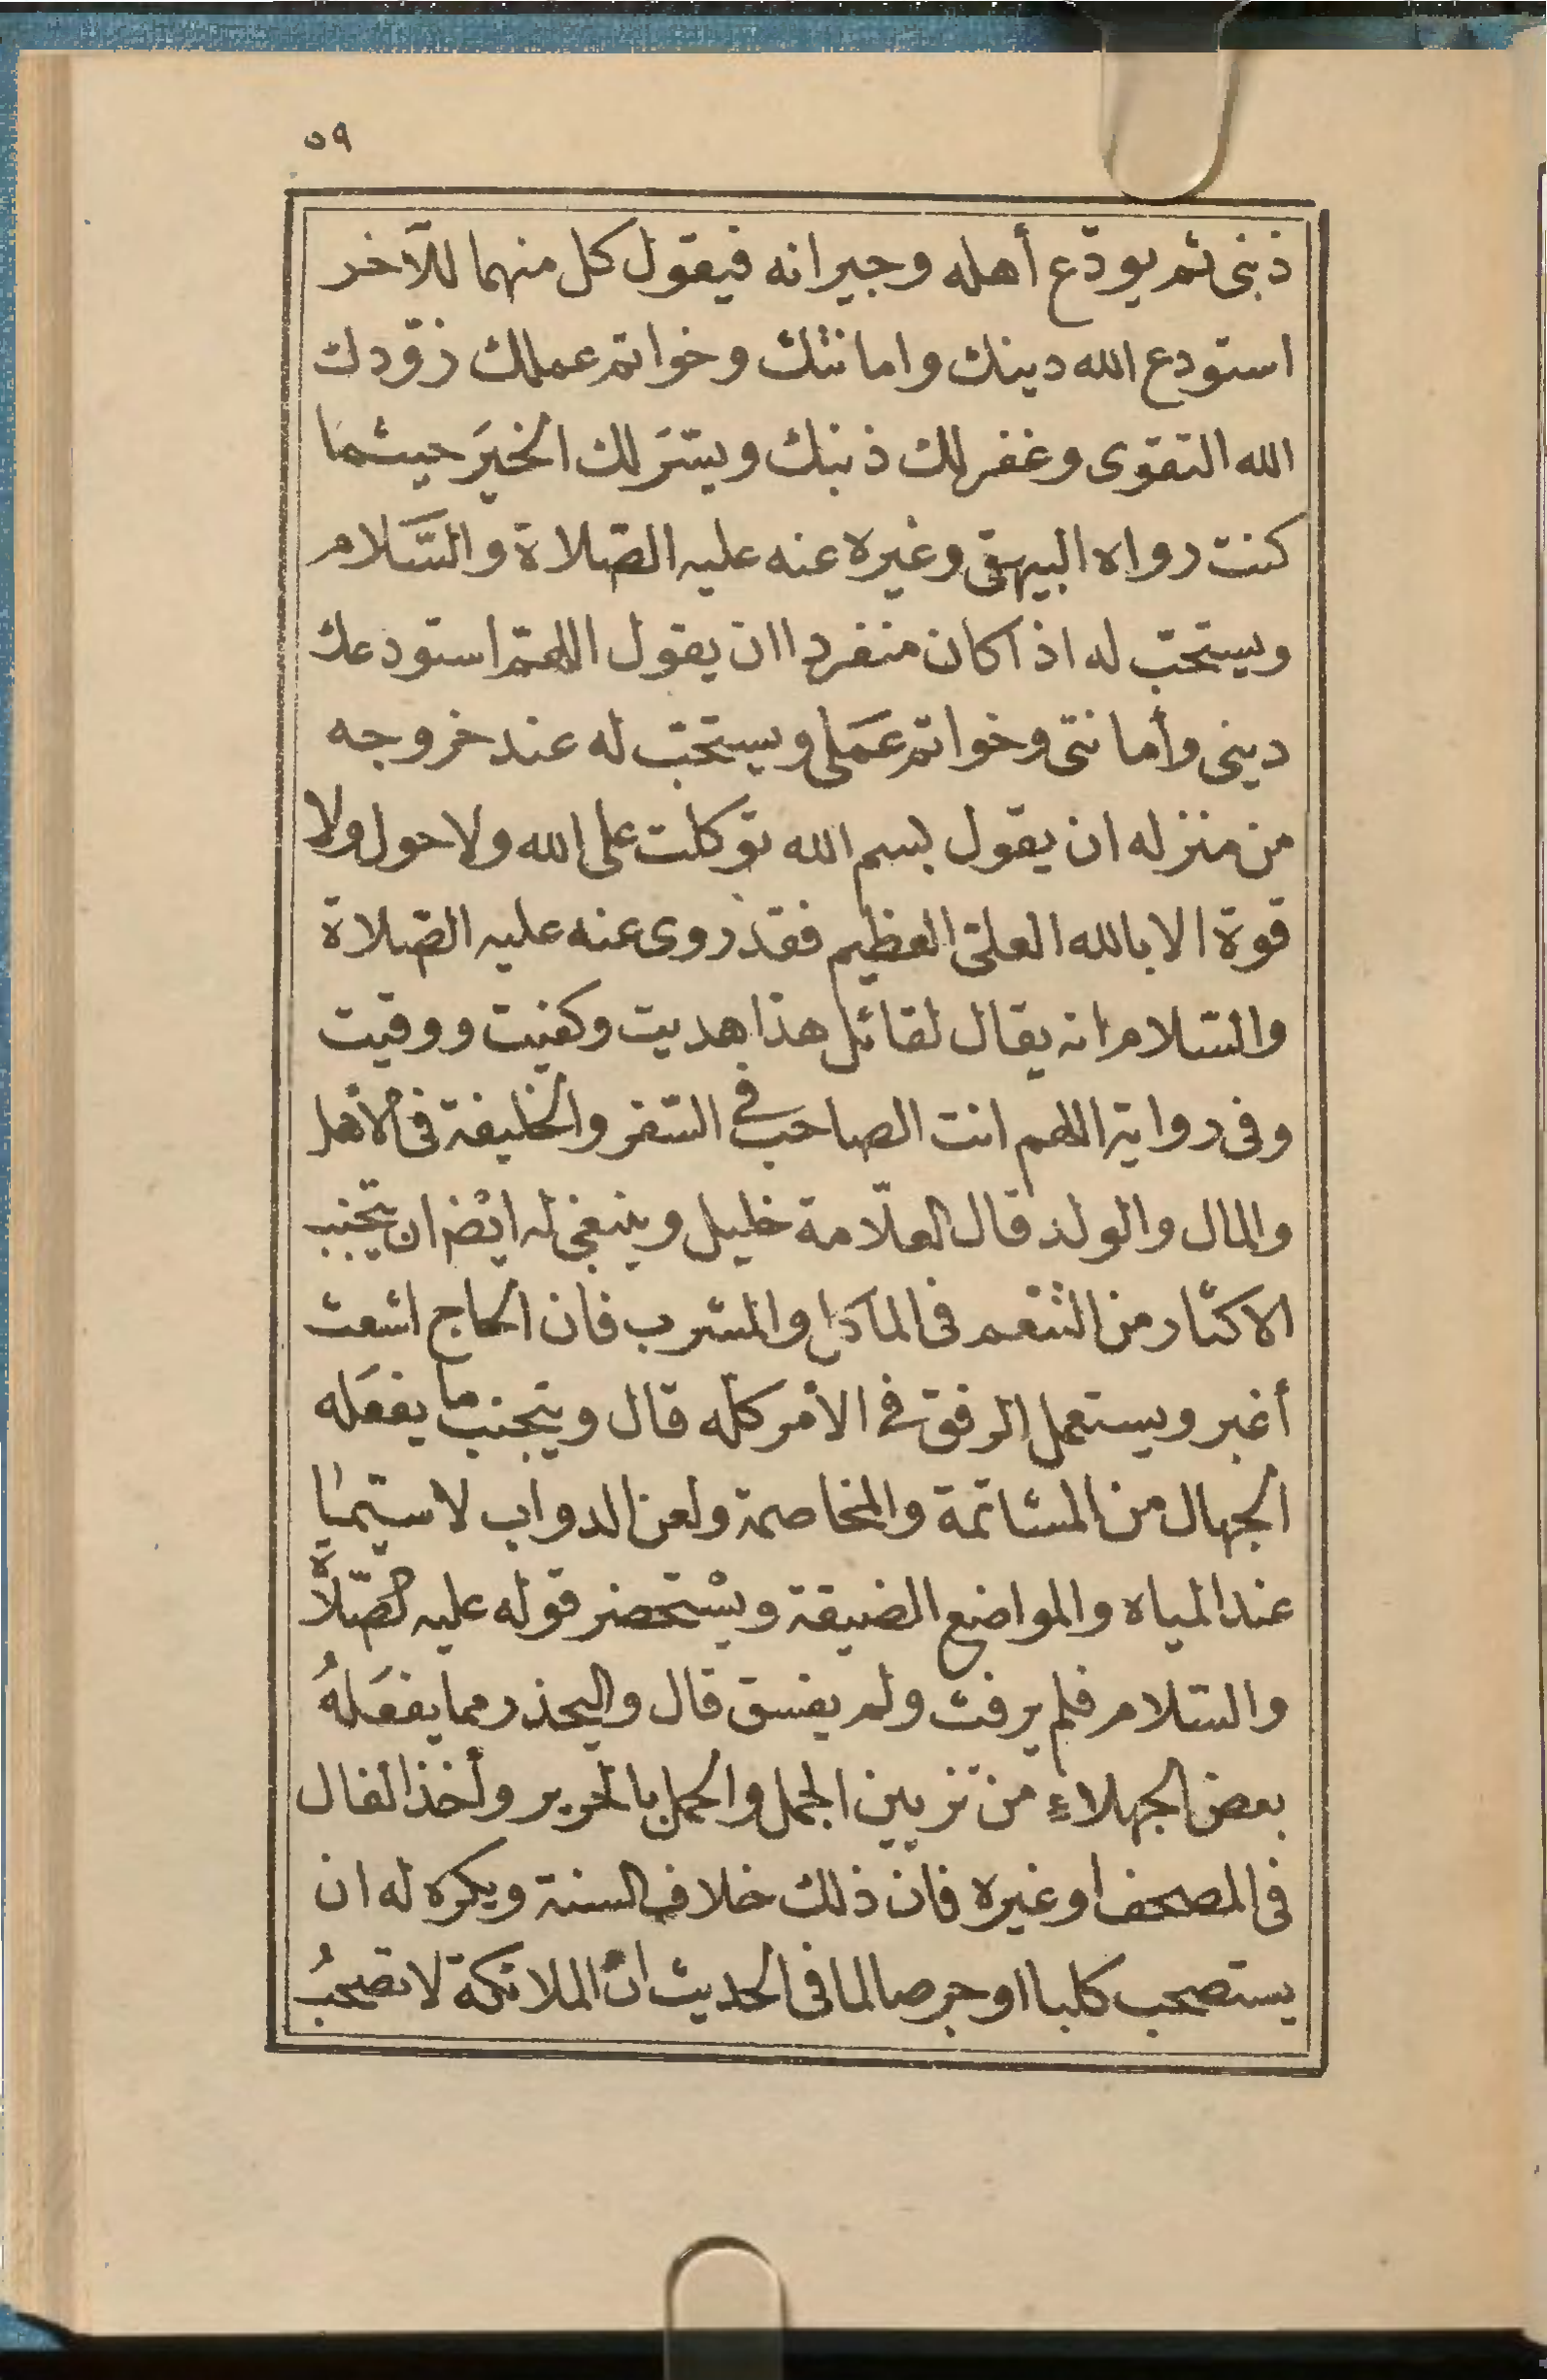 ٥٩
ذنبى ثم يودّع أهله وجيرانه فيقول كل منهما للآخر
استودع الله دينك وامانتك وخواتم عملك زوّدك
الله التقوى وغفر لك ذنبك ويسّرَ لك الخيَر حيثما
كنت رواه البيهقى وغيره عنه عليه الصّلاة والسَّلام
ويستحبّ له اذا كان منفردا ان يقول اللهمّ استودعك
دينى وأمانتى وخواتم عَمَلى ويستحبّ له عند خروجه
من منزله ان يقول بسم الله توكلت على الله ولا حول ولا
قوة الا بالله العلىّ العظيم فقد روى عنه عليه الصّلاة
والسّلام انه يقال لقائل هذا هديت وكفيت ووقيت
وفى رواية اللهم انت الصاحب فى السّفر والخليفة فى الأهل
والمال والولد قال العلّامة خليل وينبغى له ايْضا ان يتجّنب
الاكثار من التنعّم فى المآكل والمشرب فان الحاج اشعث
أغبر ويستعمل الرفق فى الأمر كلّه قال ويتجنب ما يفعَله
الجهال من المشاتمة والمخاصمة ولعن الدواب لا سيّما
عند المياه والمواضع الضيقة ويسْتحضر قوله عليه الصّلاة
والسّلام فلم يرفث ولم يفسق قال واليحذر مما يفعَلهُ
بعض الجهلاءِ من تزيين الجمل والحمل بالحرير وأخذ الفال
فى المصحف او غيره فان ذلك خلاف السنة ويكره له ان
يستصحب كلبا او جرصا لما فى الحديث انّ الملائكة لا تصحبُ